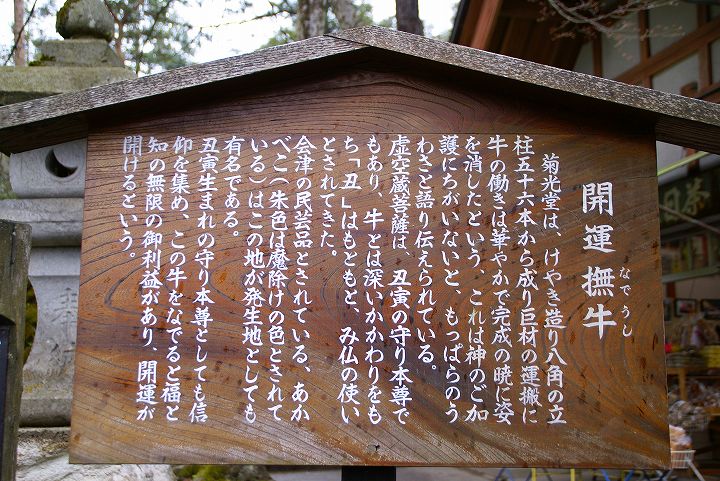 開運撫牛
なでうし
菊光堂は、けやき造り八角の立
柱五十六本から成り巨材の運搬に
牛の働きは華やかで完成の暁に姿
を消したという、これは神のご加
護にちがいないと、もっぱらのう
わさと語り伝えられている。
虚空蔵菩薩は、丑寅の守り本尊で
もあり、牛とは深いかかわりをも
ち「丑」はもともと、み仏の使い
とされてきた。
会津の民芸品とされている、あか
べこ（朱色は魔除けの色とされて
いる）はこの地が発生地としても
有名である。
丑寅生まれの守り本尊としても信
仰を集め、この牛をなでると福と
知の無限の御利益があり、開運が
開けるという。